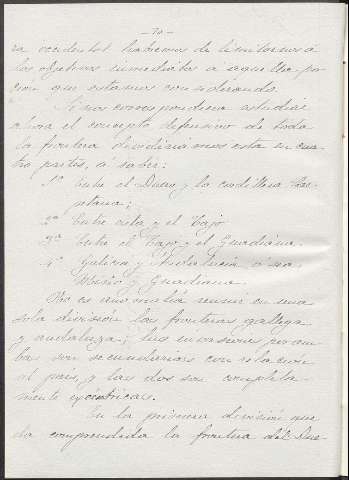 -70-
ra occidental habremos de limitarnos á
los objetivos inmediatos á aquella por-
cion que estamos considerando.
Si nos correspondiera estudiar
ahora el concepto defensivo de toda
la frontera dividiriamos esta en cua-
tro partes, á saber:
1ª Entre el Duero y la cordillera Car-
petana;
2ª Entre esta y el Tajo
3ª Entre el Tajo y el Guadiana.
4ª Galicia y Andalucia ó sea
Miño y Guadiana.
No es anomalia reunir en una
sola division las fronteras gallega
y andaluza; las invasiones por am-
bas son secundarias con relacion
al pais, y las dos son completa-
mente excéntricas.
En la primera division que-
da comprendida la frontera del Due-